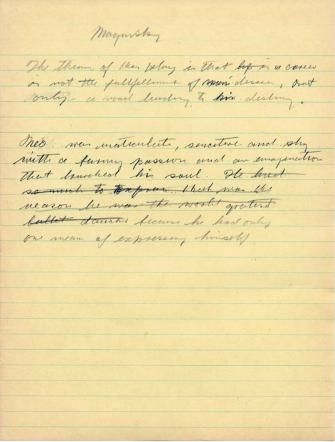 Mayinsky
The theme of this play is that life is a career
is not the fullfillment of man's desires, but
only a road leading to his destiny.
He was inarticulate, sensitive and shy
with a burning passion and an imagination
that his soul. He had
so much to express that was the
reason he was the world greatest
ballet dancer because he had only
one mean of expressing himself